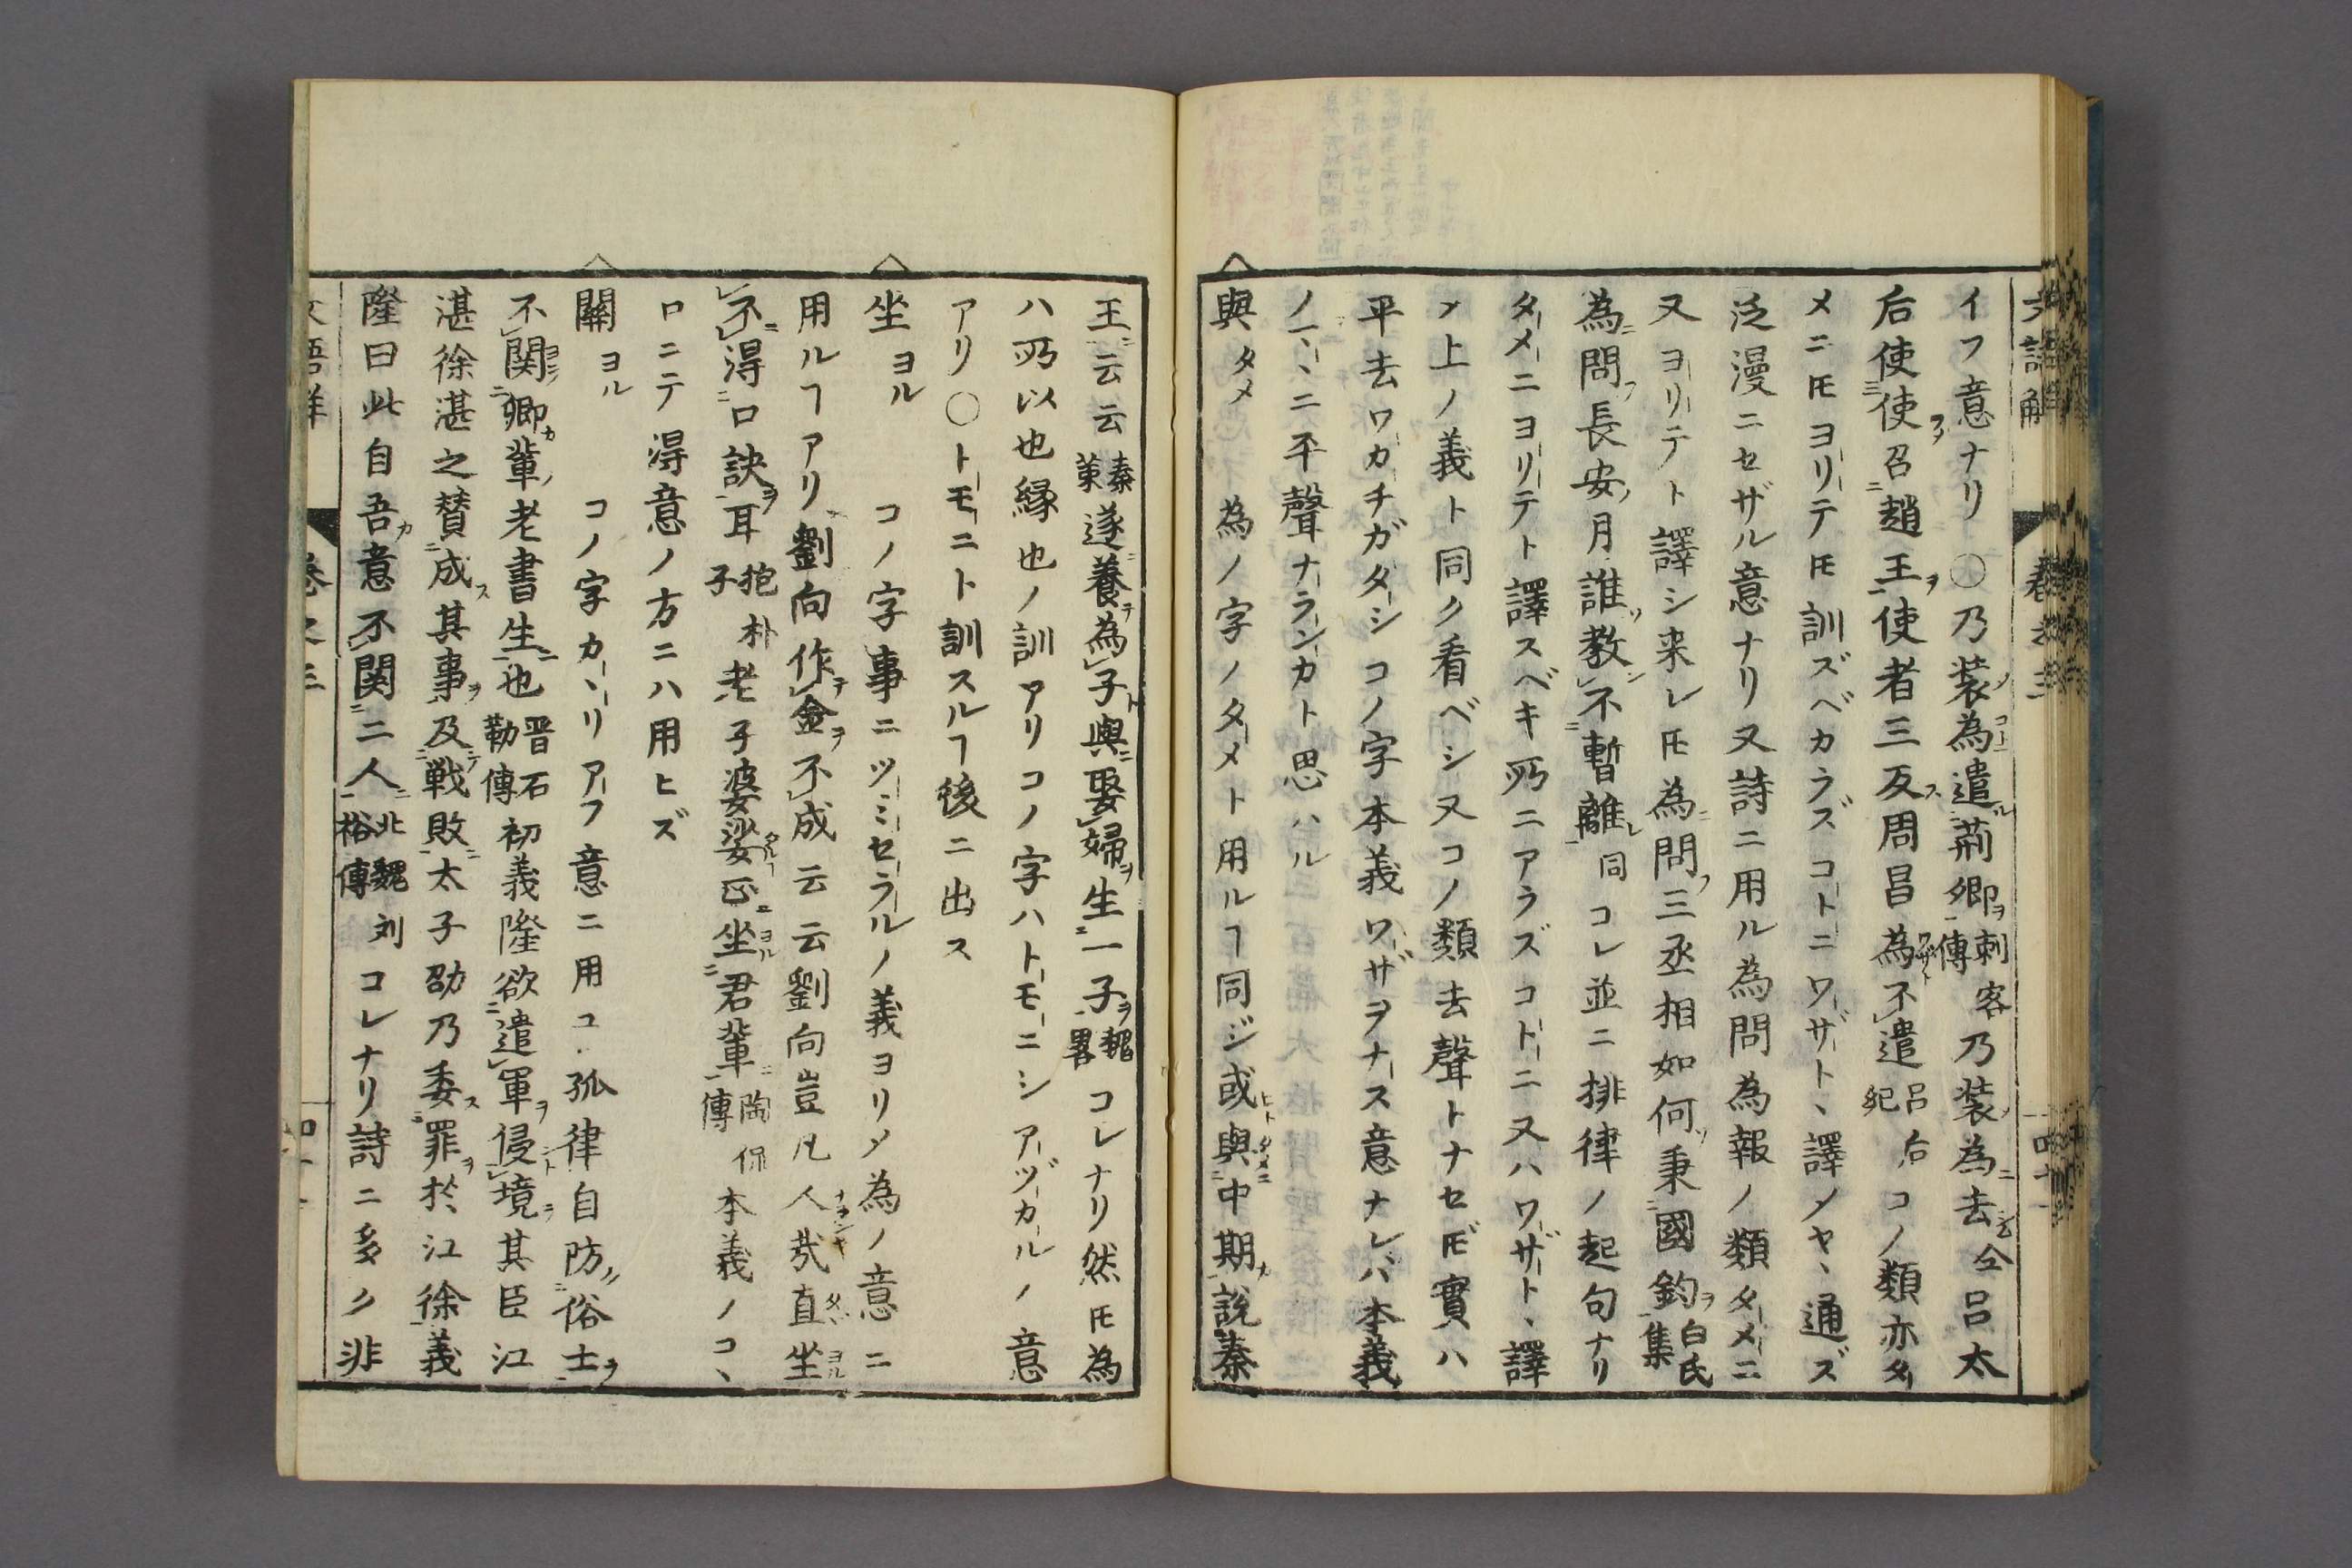 文語解 卷之三 四十一
イフ意ナリ〇乃装為遣荊卿刺客傳乃装為去仝呂太
后使使召趙王使者三反周昌為不遣呂后紀コノ類亦タ
メニㇳモヨリテㇳモ訓ズベカラズコトニワザト、譯ノヤ、通ズ
泛漫ニセザル意ナリ又詩ニ用ル為問為報ノ類タメニ
又ヨリテト譯シ来レㇳモ為問三丞相如何秉國鈞白氏集
為問長安月誰教不暫離同コレ並ニ排律ノ起句ナリ
タメニヨリテト譯スベキ所ニアラズコトニ又ハワザト、譯
〆上ノ義ト同ク看ベシ又コノ類去聲トナセㇳモ實ハ
平去ワカチガタシコノ字本義ワザヲナス意ナレバ本義
ノ一、ニ平聲ナランカト思ハル
與 タメ 為ノ字ノタメト用ルヿ同ジ或與中期説秦
王云云秦策遂養為子與娶婦生一子魏畧コレナリ然ㇳモ為
ハ所以也縁也ノ訓アリコノ字ハトモニシアヅカルノ意
アリ〇トモニト訓スルヿ後ニ出ス
坐 ヨル コノ字事ニツミセラルノ義ヨリ〆為ノ意ニ
用ルヿアリ劉向作金不成云云劉向豈凡人哉直坐
不得口訣耳抱朴子老子婆娑正坐君輩陶侃傳本義ノコ、
ロニテ得意ノ方ニハ用ヒズ
關 ヨル コノ字カ、リアフ意ニ用ユ孤律自防俗士
不関卿輩老書生也晋石勒傳初義隆欲遣軍侵境其臣江
湛徐湛之賛成其事及戦敗太子劭乃委罪於江徐義
隆曰此自吾意不関二人北魏刘裕傳コレナリ詩ニ多ク非
文語解 卷之三